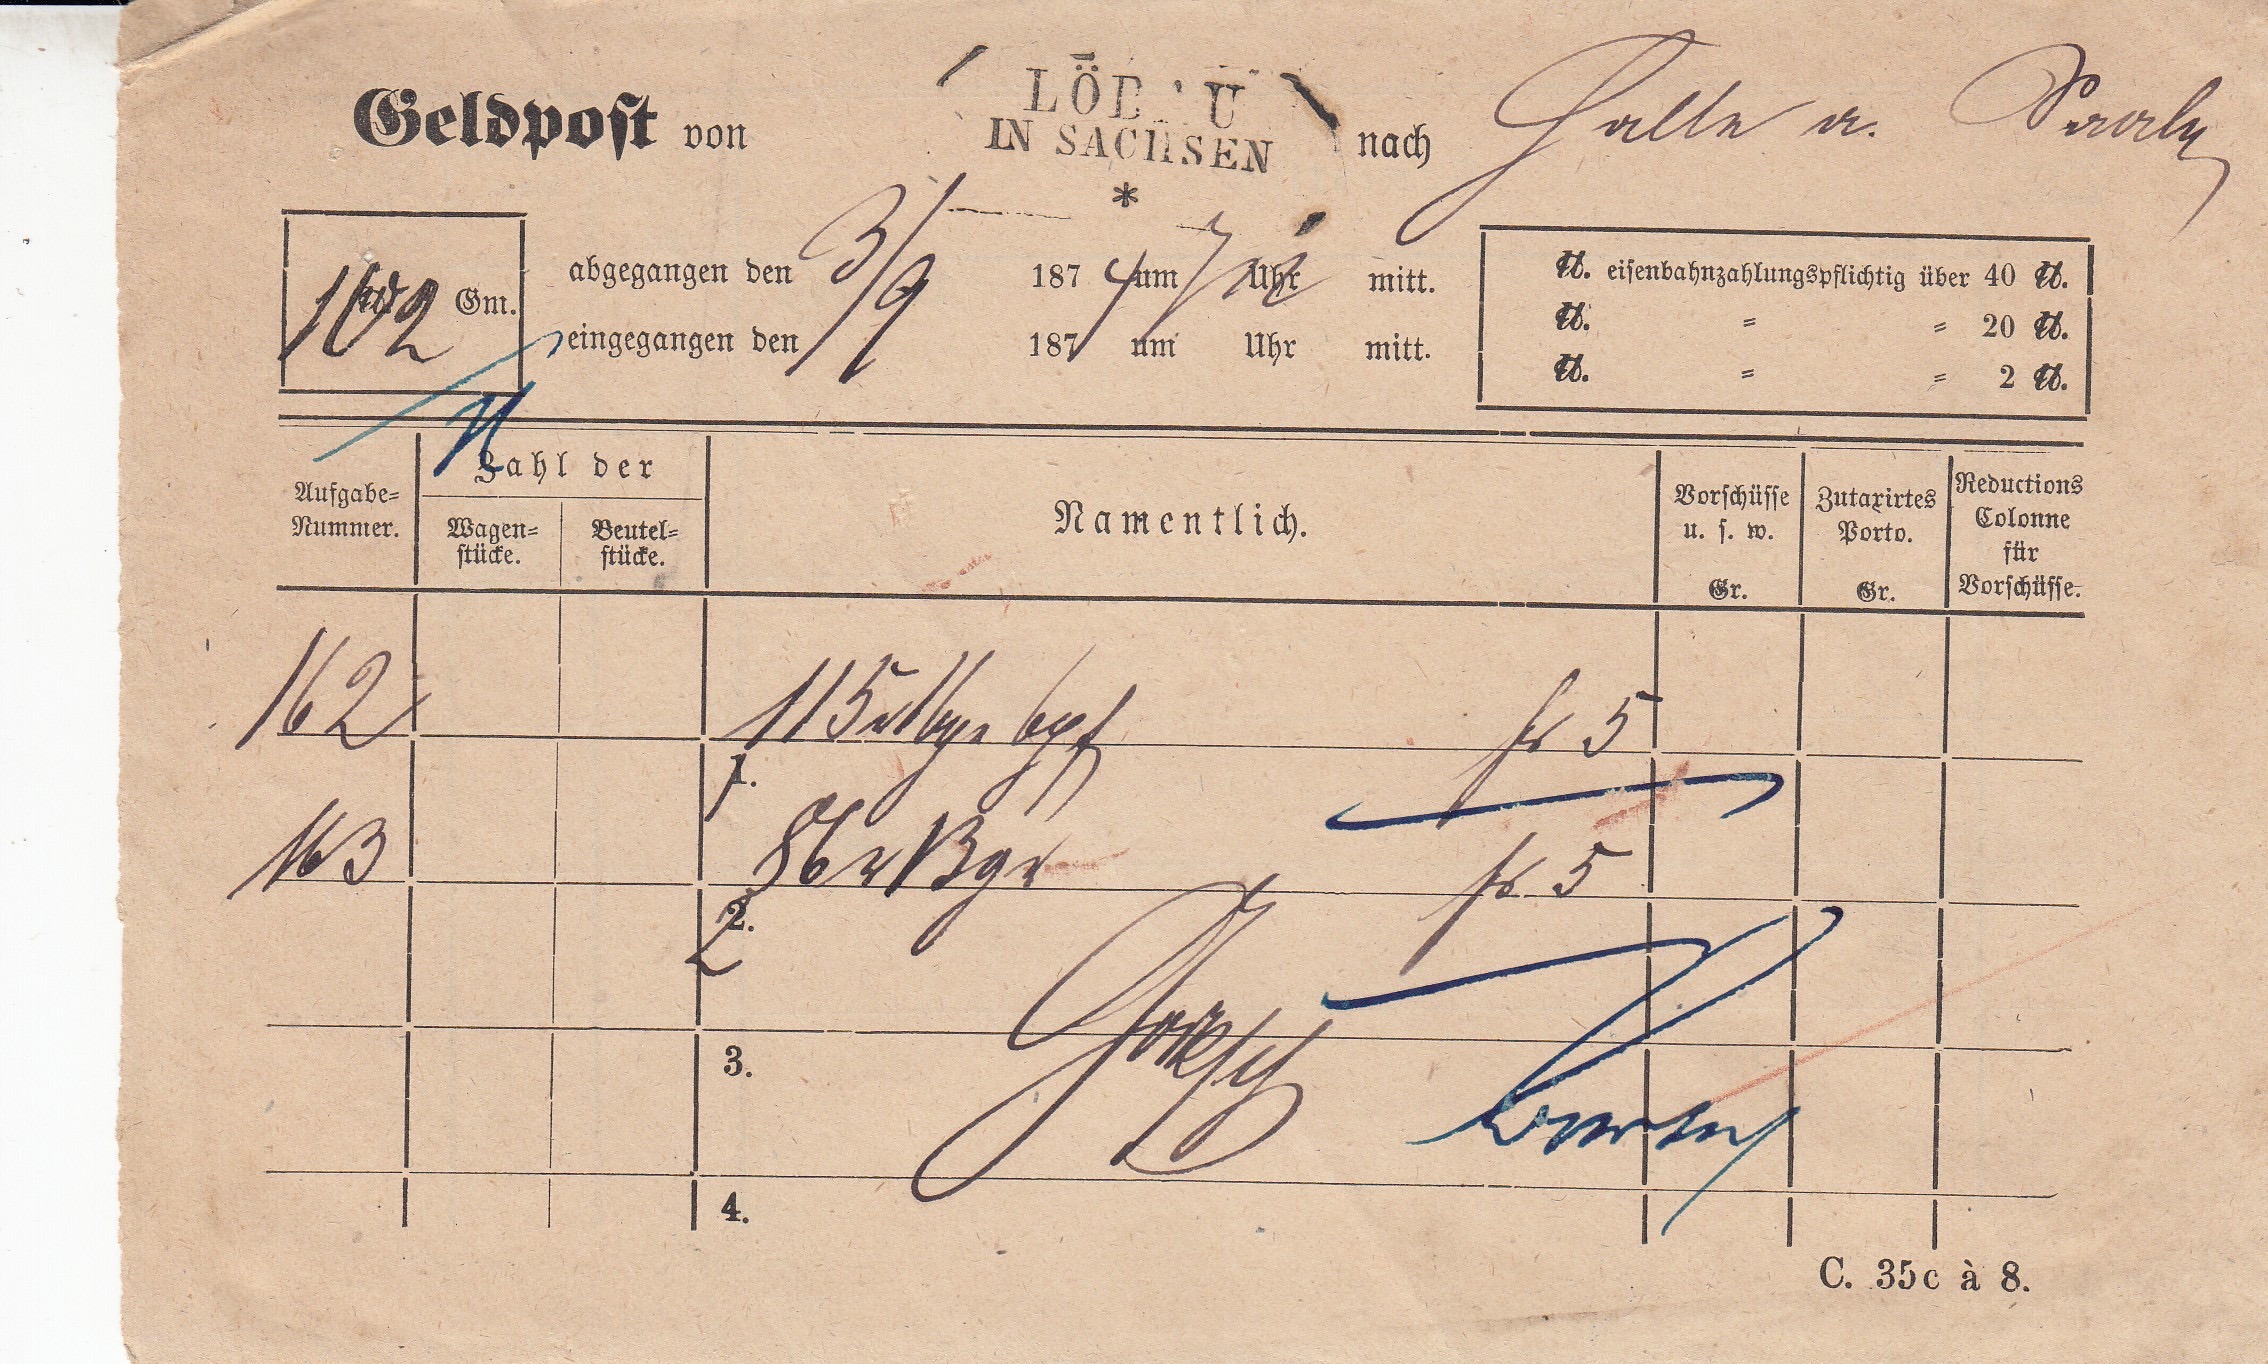 Geldpost von LÖBAU IN SACHSEN * nach Halle a. Saale
162 Gm.
abgegangen den 3/9 1874 um 7 Uhr mitt.
eingegangen den 187 um Uhr mitt.
℔. eisenbahnzahlungspflichtig über 40 ℔.
℔. " " 20 ℔.
℔. " " 2 ℔.
Aufgabe-Nummer.
Zahl der
Wagen-stücke.
Beutel-stücke.
Namentlich.
Vorschüsse u. s. w. Gr.
Zutaxirtes Porto. Gr.
Reductions Colonne für Vorschüsse.
162 115 fr 5
1.
163 86 fr 5
2.
2
3.
4.
C. 35c à 8.